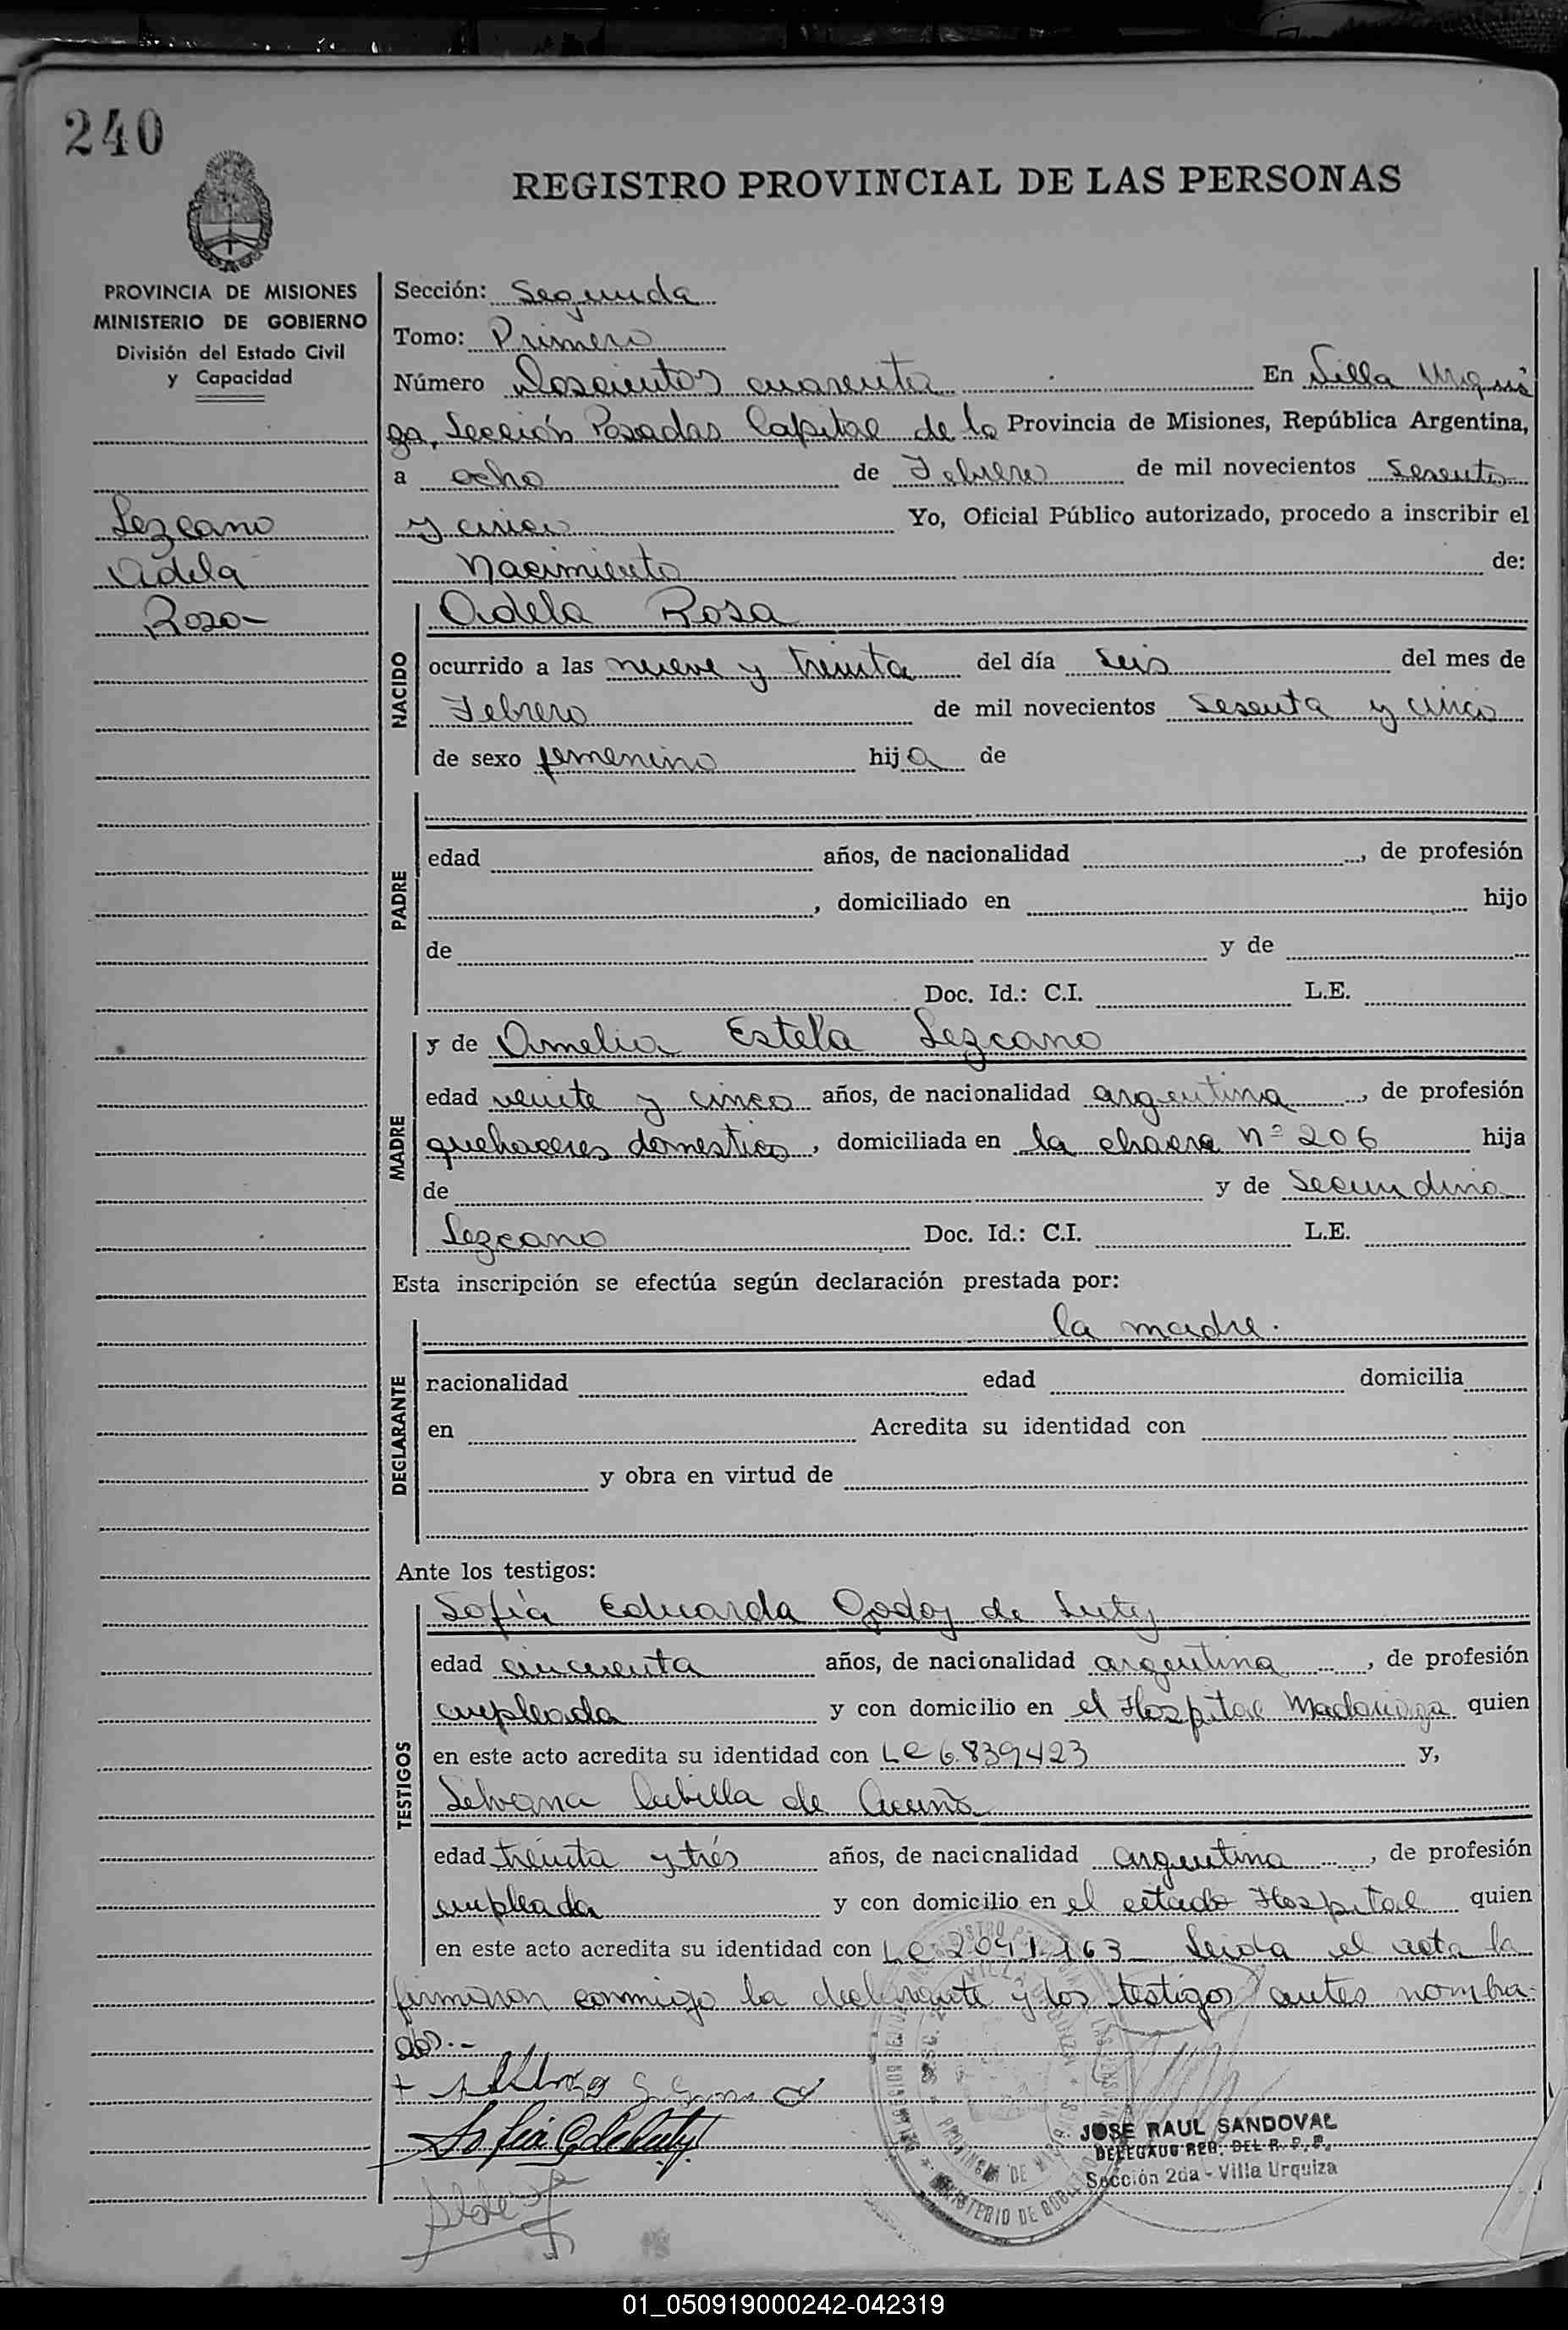 240
REGISTRO PROVINCIAL DE LAS PERSONAS
PROVINCIA DE MISIONES
MINISTERIO DE GOBIERNO
División del Estado Civil
y Capacidad
Lezcano
Adela
Rosa-
Sección: Segunda
Tomo: Primero
Número Doscientos cuarenta En Villa Urqui
za, Sección Posadas Capital de la Provincia de Misiones, República Argentina,
a ocho de Febrero de mil novecientos sesenta
y cinco Yo, Oficial Público autorizado, procedo a inscribir el
Nacimiento de:
NACIDO
Adela Rosa
ocurrido a las nueve y treinta del día seis del mes de
Febrero de mil novecientos sesenta y cinco
de sexo femenino hija de
PADRE
edad años, de nacionalidad , de profesión
, domiciliado en hijo
de y de
Doc. Id.: C.I. L.E.
MADRE
y de Amelia Estela Lezcano
edad veinte y cinco años, de nacionalidad argentina, de profesión
quehaceres domestico, domiciliada en la chacra nº 206 hija
de y de Secundino
Lezcano Doc. Id.: C.I. L.E.
Esta inscripción se efectúa según declaración prestada por:
DECLARANTE
la madre.
nacionalidad edad domicilia
en Acredita su identidad con
y obra en virtud de
Ante los testigos:
TESTIGOS
Sofía Eduarda Godoy de Luty
edad cincuenta años, de nacionalidad argentina, de profesión
empleada y con domicilio en el Hospital Madariaga quien
en este acto acredita su identidad con LC 6.839423 y,
Selvana Cubilla de Acuña
edad treinta y trés años, de nacionalidad argentina, de profesión
empleada y con domicilio en el citado Hospital quien
en este acto acredita su identidad con LC 2041.163 Leida el acta la
firmaron conmigo la declarante y los testigos antes nombra-
dos.-
JOSE RAUL SANDOVAL
DELEGADO REG. DEL R. P. P.
Sección 2da - Villa Urquiza
01_050919000242-042319